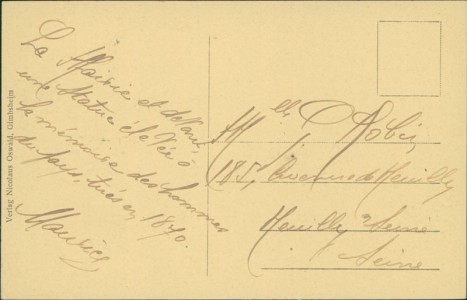 La Mairie et devant
une statue élevée à
la mémoire des hommes
du pays, tués en 1870.
Maurice
Verlag Nicolaus Oswald, Gimbsheim
Mlle Robin
185, Avenue de Neuilly
Neuilly s/ Seine
Seine